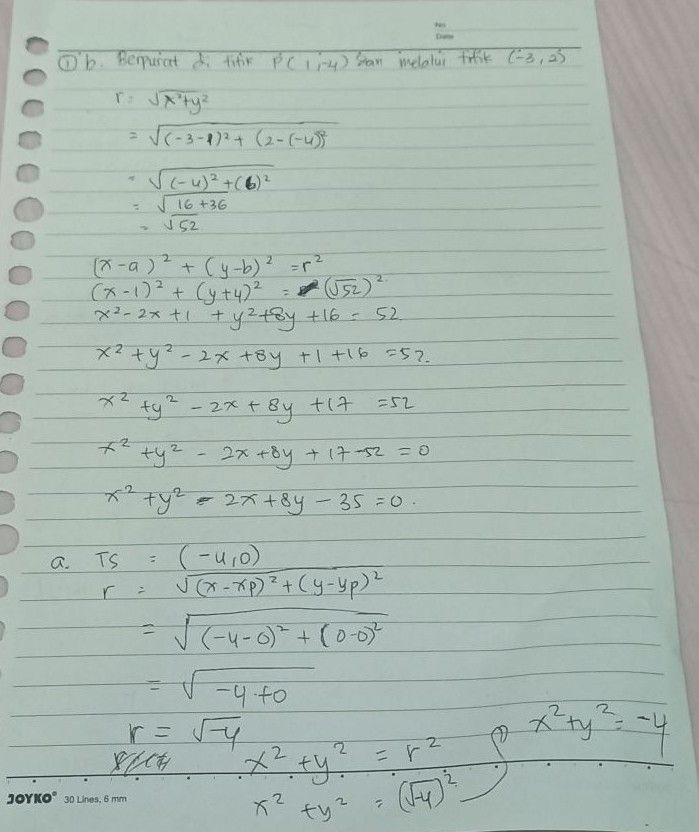 No
Date
① b. Berpusat di titik P(1,-4) dan melalui titik (-3,2)
r = √x²+y²
= √(-3-1)² + (2-(-4))²
= √(-4)² + (6)²
= √16+36
= √52
(x-a)² + (y-b)² = r²
(x-1)² + (y+4)² = (√52)²
x² - 2x + 1 + y² + 8y + 16 = 52
x² + y² - 2x + 8y + 1 + 16 = 52.
x² + y² - 2x + 8y + 17 = 52
x² + y² - 2x + 8y + 17 - 52 = 0
x² + y² - 2x + 8y - 35 = 0.
a. TS = (-4,0)
r = √(x-xp)² + (y-yp)²
= √(-4-0)² + (0-0)²
= √-4+0
r = √-4
x² + y² = r²
x² + y² = (√-4)²
x² + y² = -4
JOYKO® 30 Lines, 6 mm